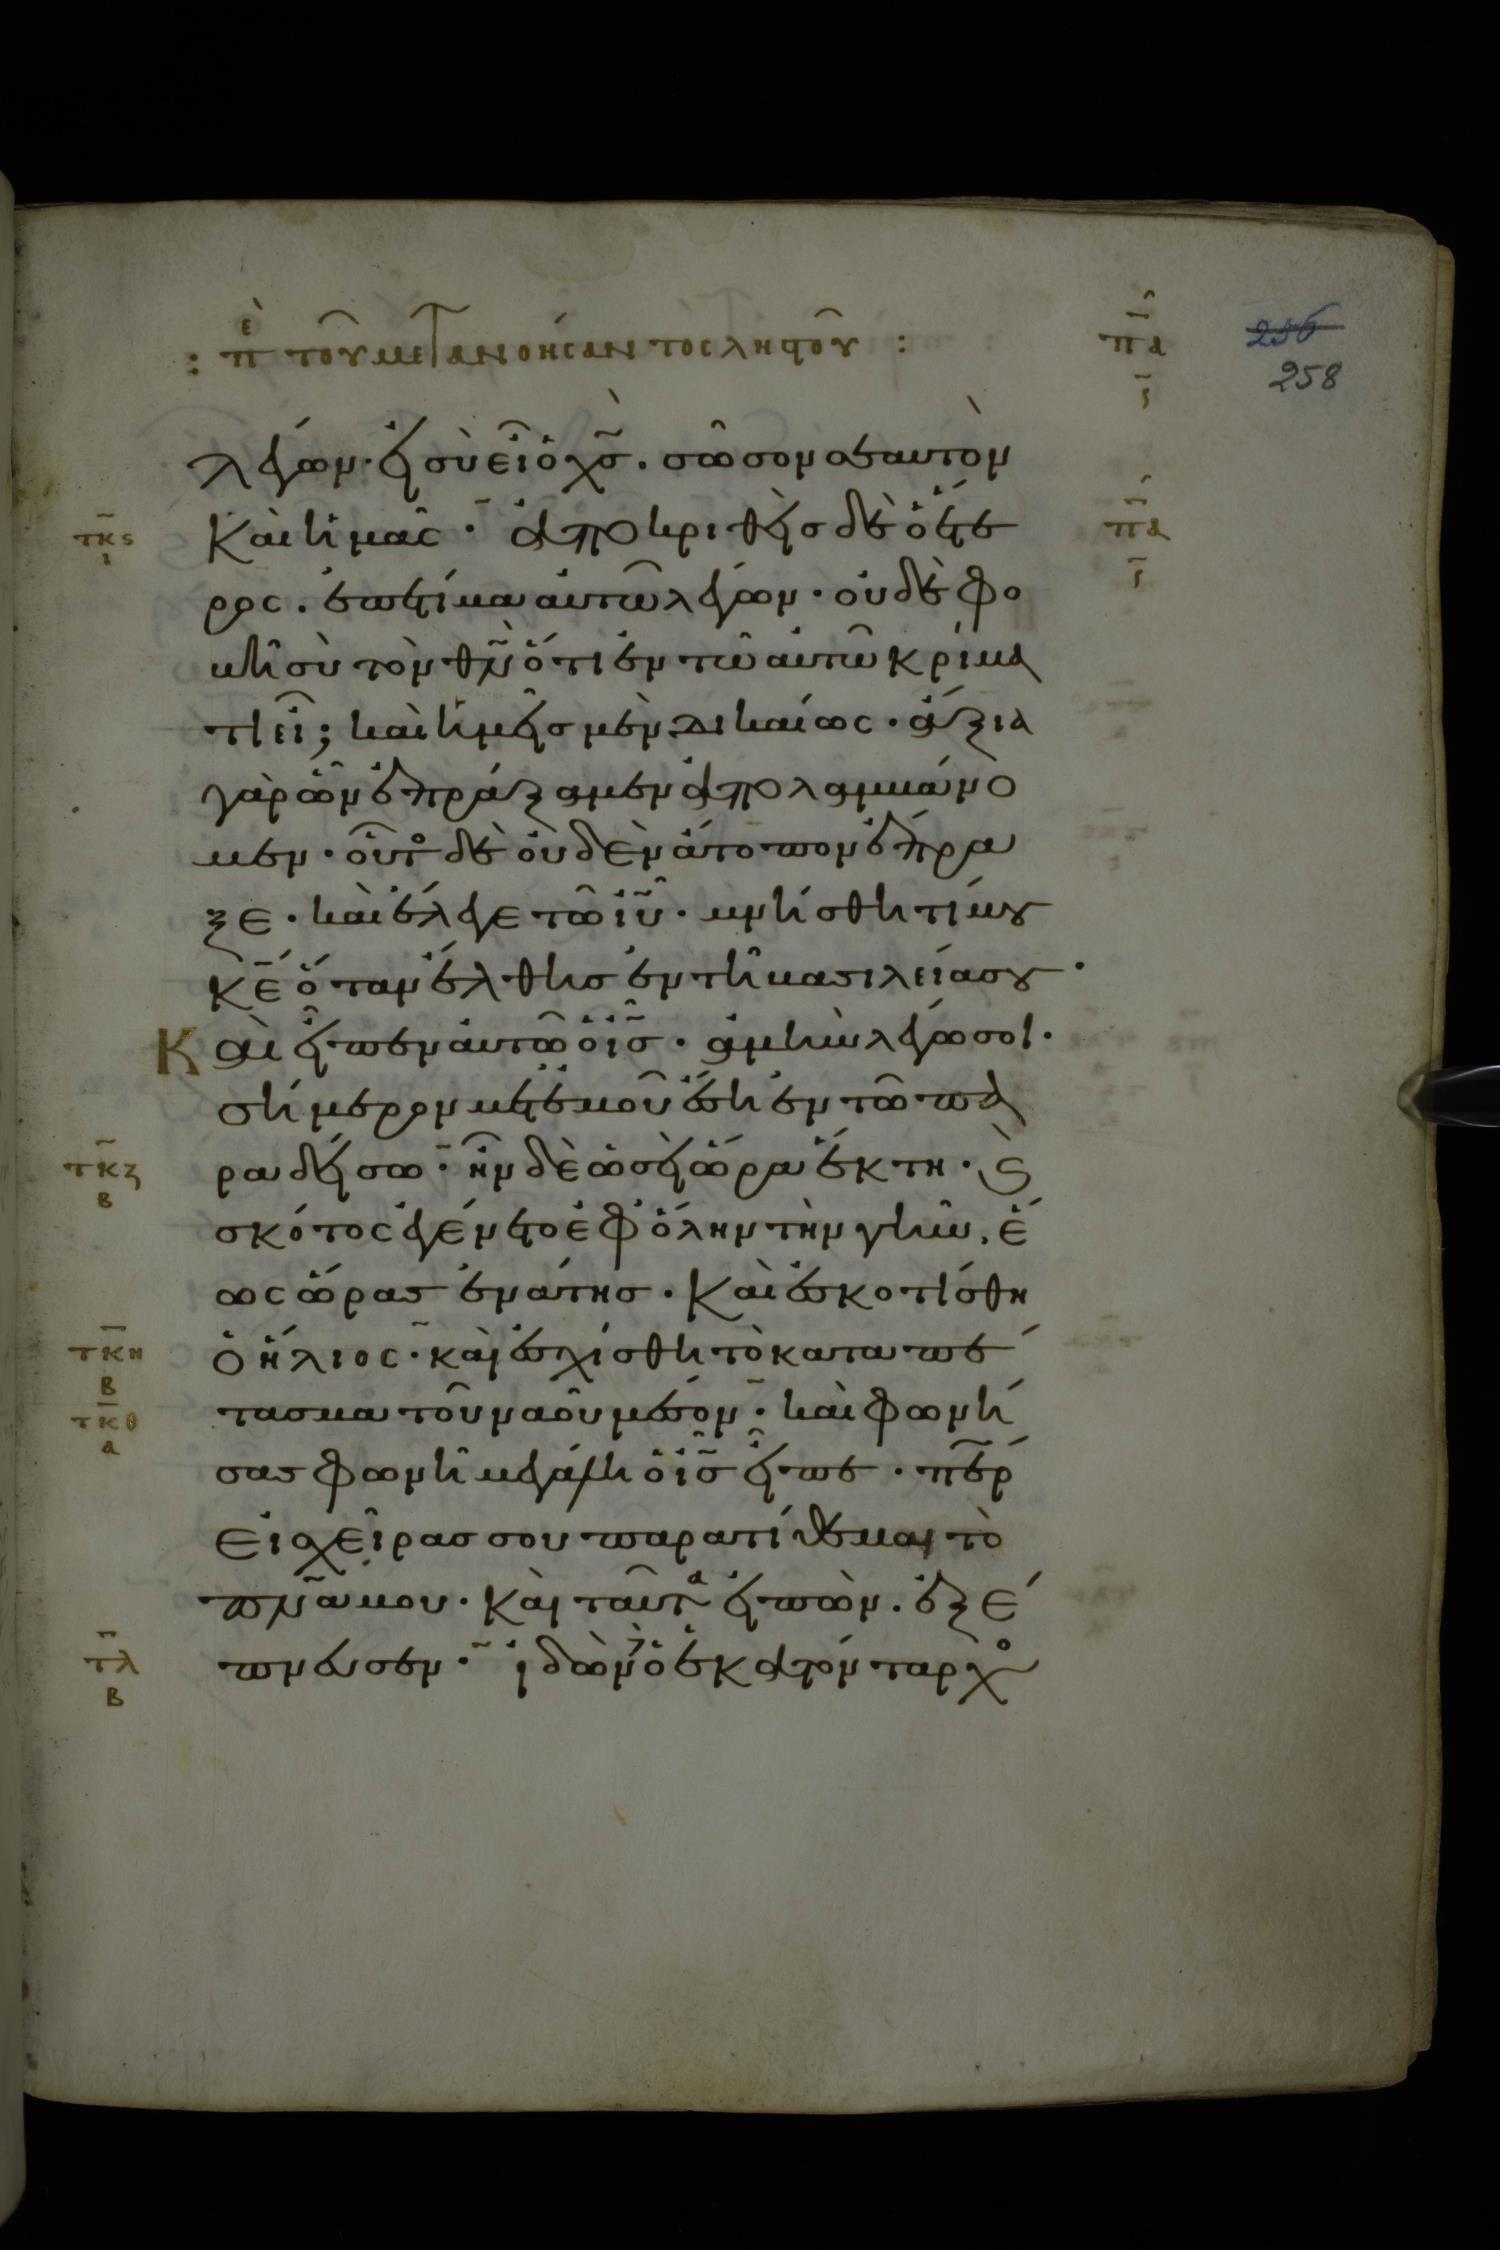 : πὲ τοῦ μετανοήσαντος ληστοῦ :
π̅α̅
ι̅
256
258
λέγων· εἰ σὺ εἶ ὁ χ̅σ̅. σῶσον σεαυτὸν
τ̅κ̅ϛ̅
ι
καὶ ἡμᾶς· ἀποκριθεὶς δὲ ὁ ἕτε
π̅α̅
ι̅
ρος. ἐπετίμα αὐτῶ λέγων· οὐδὲ φο
βῆ σὺ τὸν θ̅ν̅ ὅτι ἐν τῶ αὐτῶ κρίμα
τι εἶ; καὶ ἡμεῖς μὲν δικαίως· ἄξια
γὰρ ὧν ἐπράξαμεν ἀπολαμβάνο
μεν· οὗτο δὲ οὐδὲν ἄτοπον ἔπρα
ξε· καὶ ἔλεγε τῶ ἰ̅υ̅· μνήσθητί μου
κ̅ε̅ ὅταν ἔλθης ἐν τῆ βασιλεία σου·
Καὶ εἶπεν αὐτῶ ὁ ἰ̅σ̅· ἀμὴν λέγω σοι·
σήμερον μετ' ἐμοῦ ἔση ἐν τῶ πα
τ̅κ̅ζ̅
β
ραδείσω· ἦν δὲ ὡσεὶ ὥρα ἕκτη· ϗ
σκότος ἐγένετο ἐφ' ὅλην τὴν γῆν, ἕ
ως ὥρας ἐνάτης· καὶ ἐσκοτίσθη
τ̅κ̅η̅
β
ὁ ἥλιος· καὶ ἐσχίσθη τὸ καταπέ
τ̅κ̅θ̅
α
τασμα τοῦ ναοῦ μέσον· καὶ φωνή
σας φωνῆ μεγάλη ὁ ἰ̅σ̅ εἶπε· π̅ε̅ρ̅
εἰ χεῖρας σου παρατίθεμαι τὸ
π̅ν̅α̅ μου· καὶ ταῦτα εἰπὼν. ἐξέ
τ̅λ̅
β
πνευσεν· ἰδὼν δὲ ὁ ἑκατόνταρχο